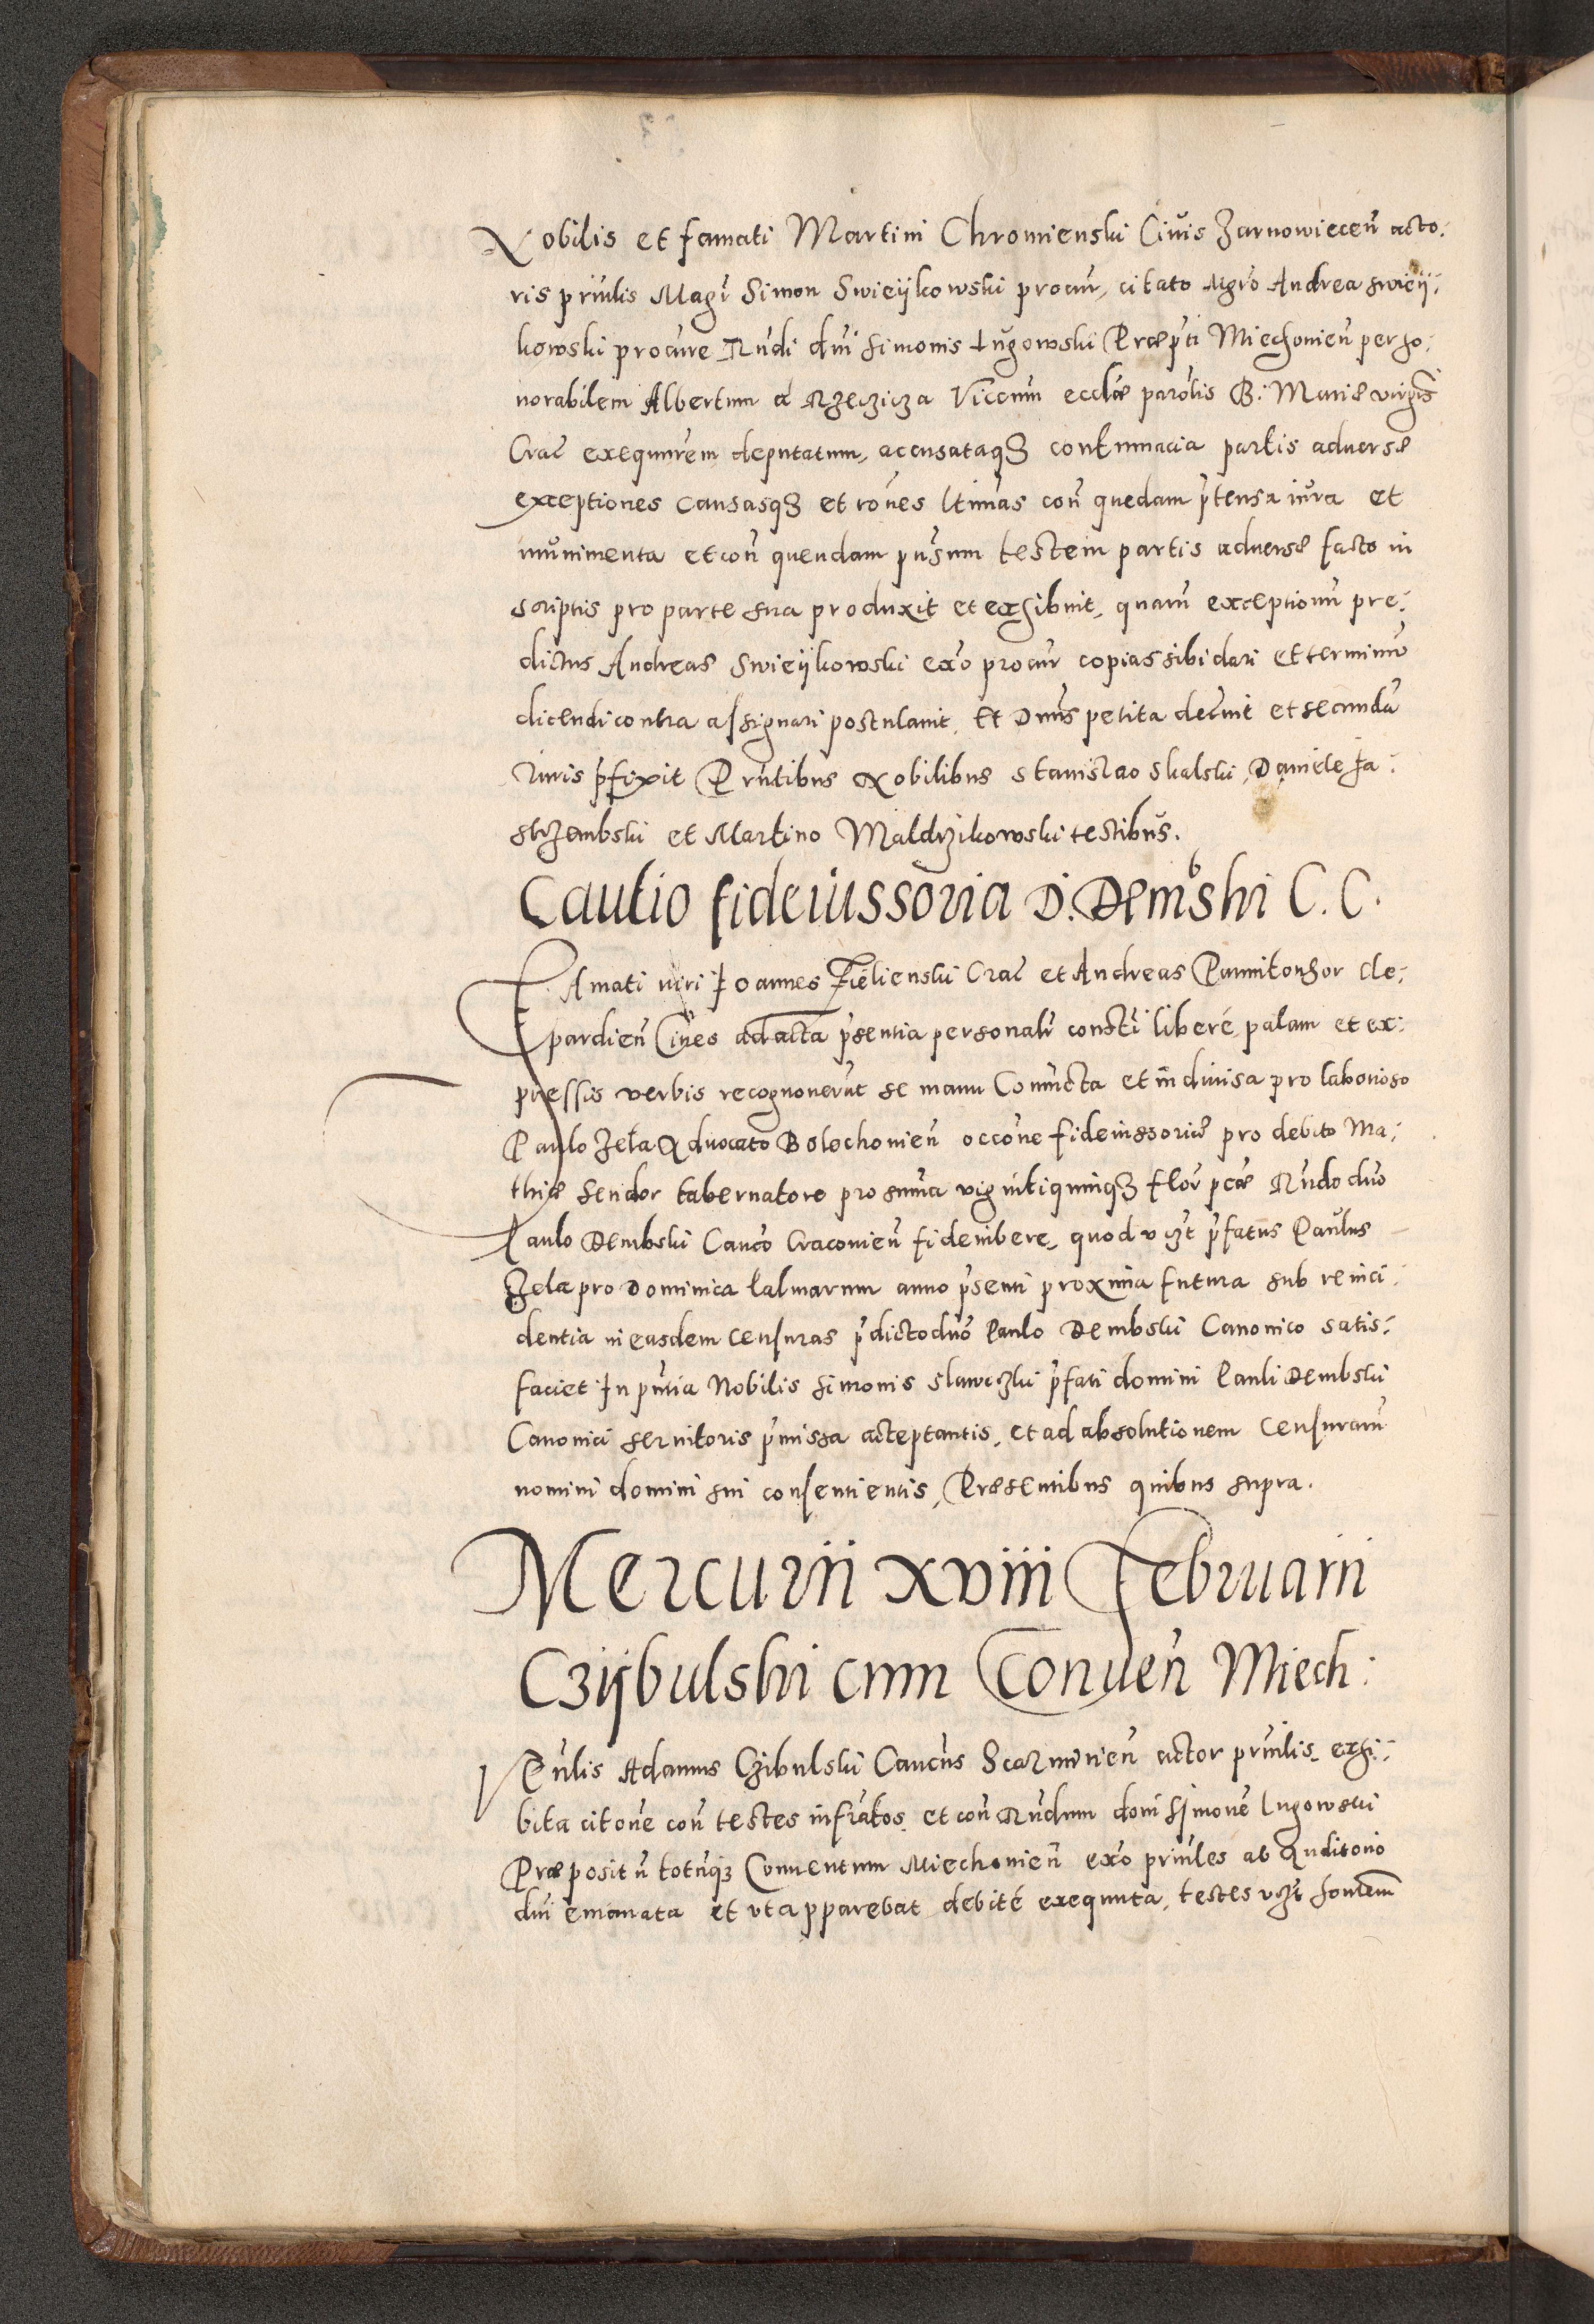 Nobilis et famati Martini Chromienski Ciuis Zarnowiecen̄ acto:
ris prinlis Magr̄ Simon Swieijkowski procur, citato Mgrō Andrea swieij:
kowski procure Rn̄di dn̄i Simonis Lugowski Præpti Miechonien̄ per ho:
norabilem Albertum a Rzeczicza Vicemn̄ ecclæ parolis B: Mariæ virgis
Crac̄ exequutem deputatum, accusataqȝ contumacia partis aduersæ
exceptiones Causasqȝ et rōnes ltimas con̄ quedam p̄tensa iura et
munimenta et con̄ quendam pn̄sum testem partis aduersæ facto in
scriptis pro parte sua produxit et exhibuit, quarn̄ exceptionn̄ pre:
dictus Andreas Swieijkowski exō procur copias sibi dari et terminū
dicendi contra assignari postulauit, Et Dnūs petita decruit et secundū
Iuris p̄fixit Prn̄tibus Nobilibus Stanislao Skalski, Daniele Ja:
strzembski et Martino Maldrzikowski testibus.
Cautio fideiussoria D. Dembski C. C.
FAmati viri Ioannes Zielienski Crac̄ et Andreas Pannitonsor Cle:
pardien̄ Ciues ad acta p̄sentia personalr̄ consti libere palam et ex:
pressis verbis recognouerūt se manu Coniuncta et indiuisa pro laborioso
Paulo Zela Aduocato Bolochonien̄ occōne fideiussoriæ pro debito Ma:
thiæ Sendor tabernatore pro suma vigintiquinqȝ flor̄ pcæ Rn̄do dnō
Paulo Dembski Cancō Craconien̄ fideiubere, quod vzt p̄fatus Paulus
Zela pro Dominica Palmarum anno p̄senti proxima futura sub reinci:
dentia in easdem censuras p̄dicto dnō Paulo Dembski Canonico satis:
faciet In pn̄tia Nobilis Simonis Slawczki p̄fati domini Pauli Dembski
Canonici seruitoris p̄missa acceptantis, et ad absolutionem censurarn̄
nomini domini sui consentientis, Præsentibus quibus supra.
Mercurii xviii Februarii
Czijbulski cum Conuen̄ Miech:
VEn̄lis Adamus Czibulski Cancūs Scarmirien̄ actor prinlis, exhi:
bita citone con̄ testes infratos, et con̄ Rn̄dum donī Simonē Lugowski
Præpositū totūqȝ Conuentum Miechonien̄ exō prinles ab Auditorio
dn̄i emanata et vt apparebat debite exequuta, testes vzt